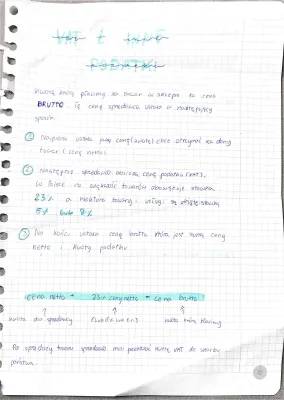 VAT i inne
podatki
Kwota którą płacimy za towar w sklepie to cena
BRUTTO. Tę cenę sprzedawca ustala w następujący
sposób.
1 Najpierw ustala jaką cenę (kwotę) chce otrzymać za dany
towar (cena netto).
2 Następnie sprzedawca oblicza cenę podatku (VAT).
W Polsce na większość towarów obowiązuje stawka
23% a niektóre towary i usługi są objęte stawką
5% lub 8%
3 Na końcu ustala cenę brutto która jest sumą ceny
netto i kwoty podatku.
cena netto + 23% ceny netto = cena brutto
kwota dla sprzedawcy
kwota którą płacimy
Po sprzedaży towaru sprzedawca musi przekazać kwotę VAT do urzędu
państwa.